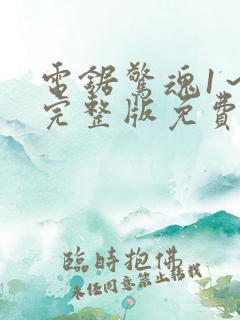 電鋸驚魂1~
完整版免費
臨時抱佛
未经同意禁止转载